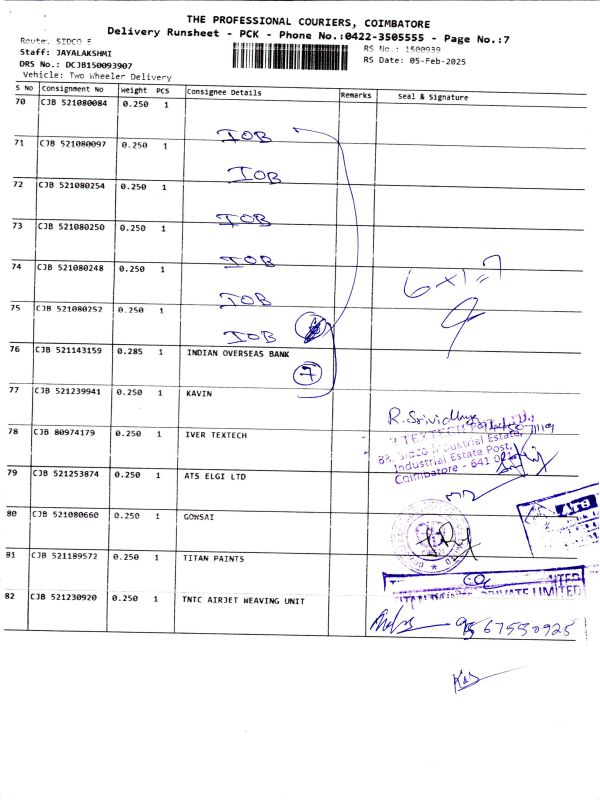 THE PROFESSIONAL COURIERS, COIMBATORE
Delivery Runsheet - PCK - Phone No.:0422-3505555 - Page No.:7
Route. SIDCO E
Staff: JAYALAKSHMI
DRS No.: DCJB150093907
Vehicle: Two Wheeler Delivery
RS No.: 1500939
RS Date: 05-Feb-2025
S No Consignment No Weight PCS Consignee Details Remarks Seal & Signature
70 CJB 521080084 0.250 1
IOB
71 CJB 521080097 0.250 1
IOB
72 CJB 521080254 0.250 1
IOB
73 CJB 521080250 0.250 1
IOB
74 CJB 521080248 0.250 1
IOB
6 x 1 = 7
75 CJB 521080252 0.250 1
IOB
76 CJB 521143159 0.285 1 INDIAN OVERSEAS BANK
7
77 CJB 521239941 0.250 1 KAVIN
R. Srividhya
78 CJB 80974179 0.250 1 IVER TEXTECH
TEXTECH
88, Sidco Industrial Estate,
Industrial Estate Post,
Coimbatore - 641 021
79 CJB 521253874 0.250 1 ATS ELGI LTD
80 CJB 521080660 0.250 1 GOWSAI
ATS
81 CJB 521189572 0.250 1 TITAN PAINTS
PRIVATE LIMITED
82 CJB 521230920 0.250 1 TNTC AIRJET WEAVING UNIT